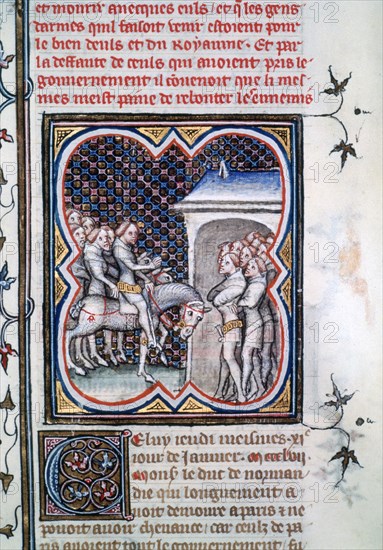 et mourir avecques euls / et que les gens
darmes quil faisoit venir estoient pour
le bien deuls et du Royaume · Et par
la deffaute de ceuls qui avoient pris le
gouvernement il cōvenoit que la mes
mes meist paine de rebouter le ẽnemis
Celuy ieudi meismes · xi ͤ
iour de Janvier · m ccc lvii
Mons' le duc de norman
die qui longuement a
voit demoure a paris : et ne
pouoit avoir chevance / car ceuls de pa
ris avoient tout le gouvernement / fu